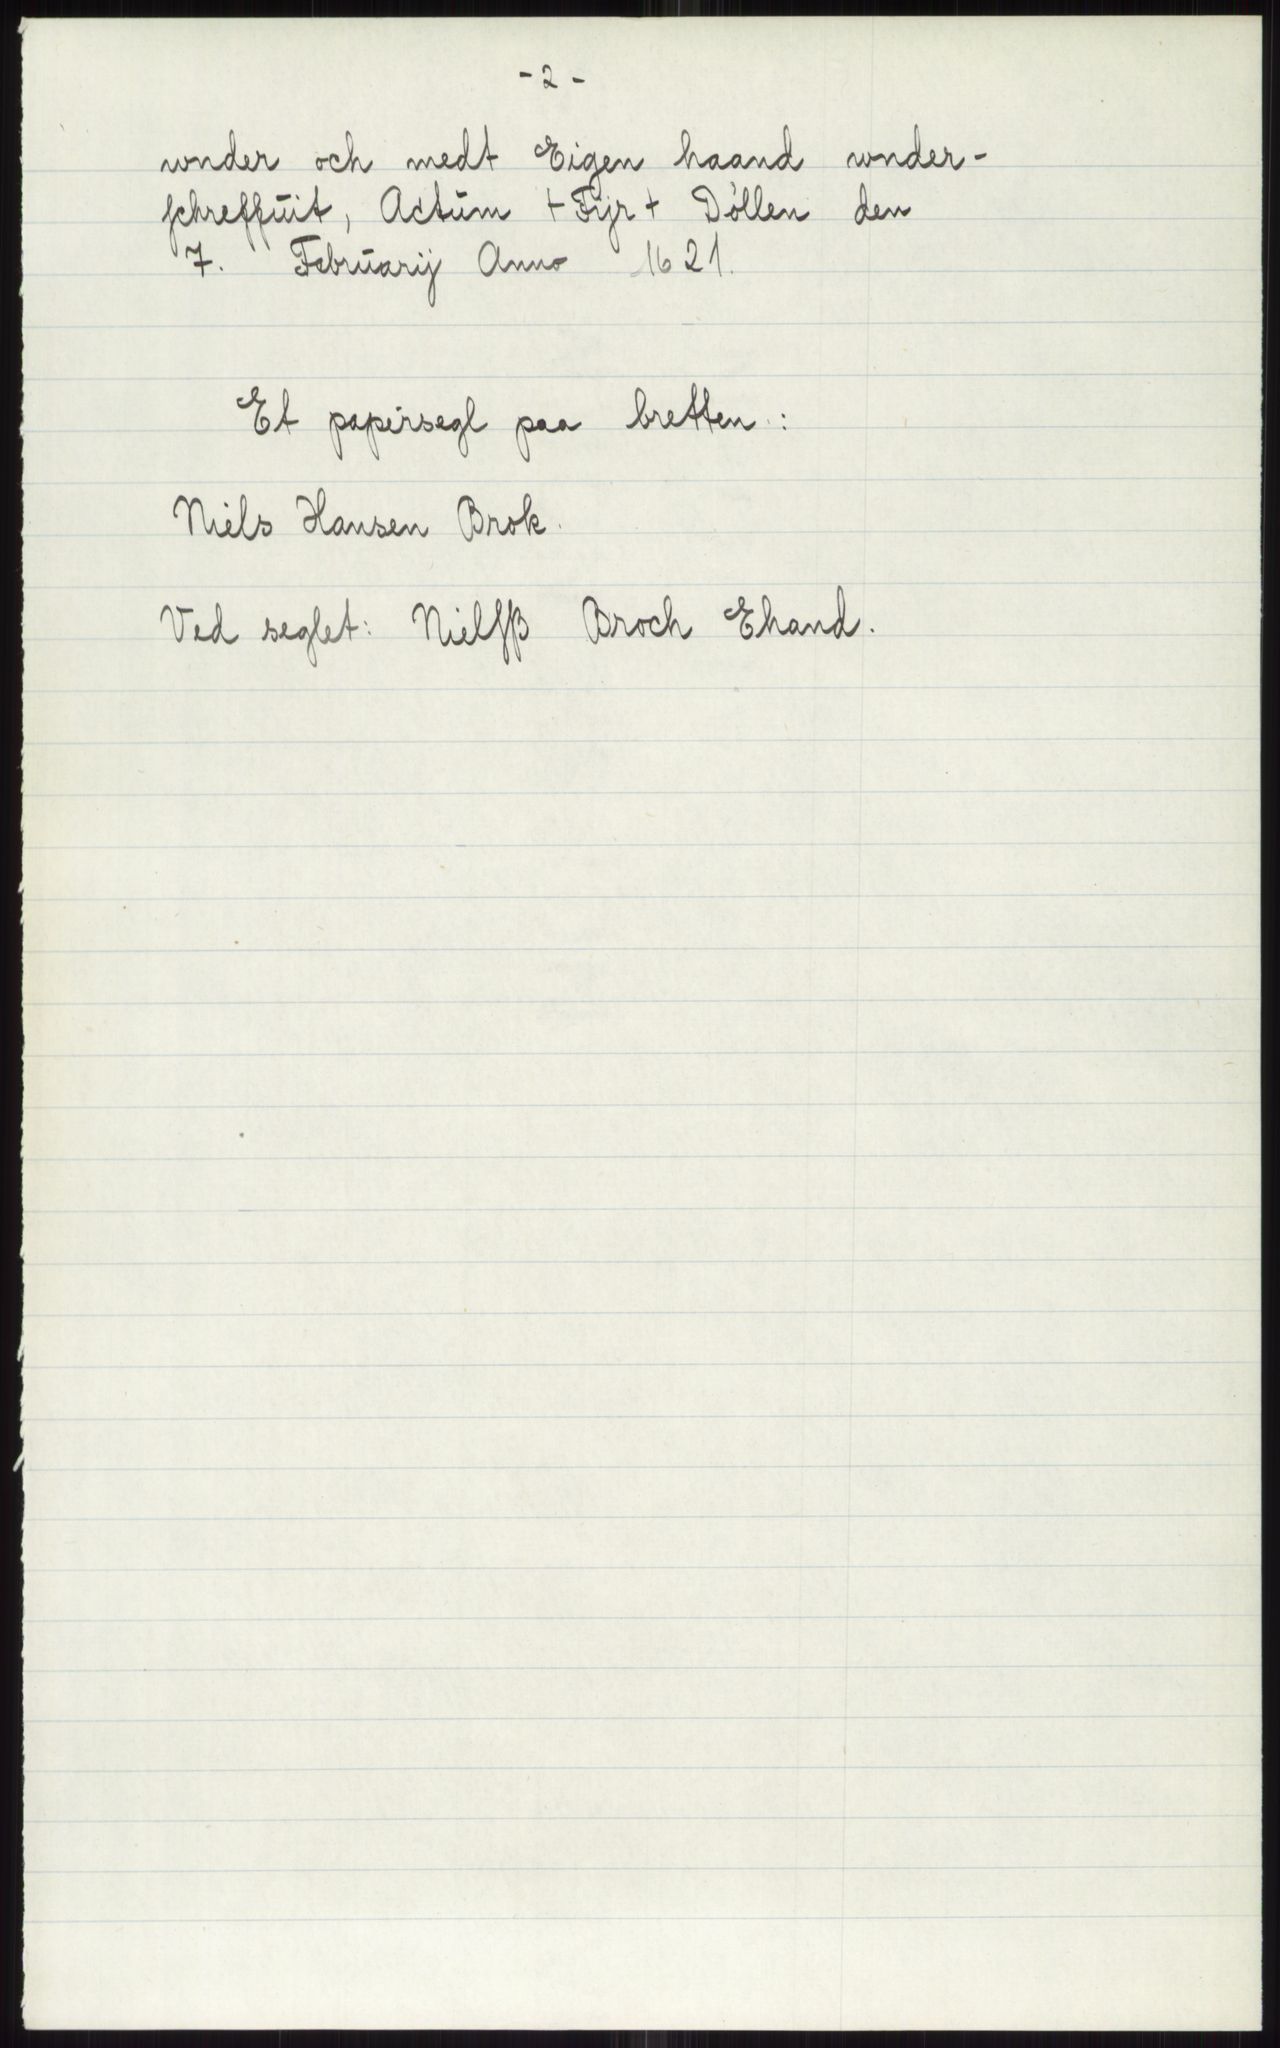 - 2 -
wnder och medt Eigen haand wnder-
schreffuit, Actum + Fyr + Døllen den
7. Februarij Anno 1621.
Et papirsegl paa bretten:
Niels Hansen Brok.
Ved seglet: Nielsß Broch Ehand.